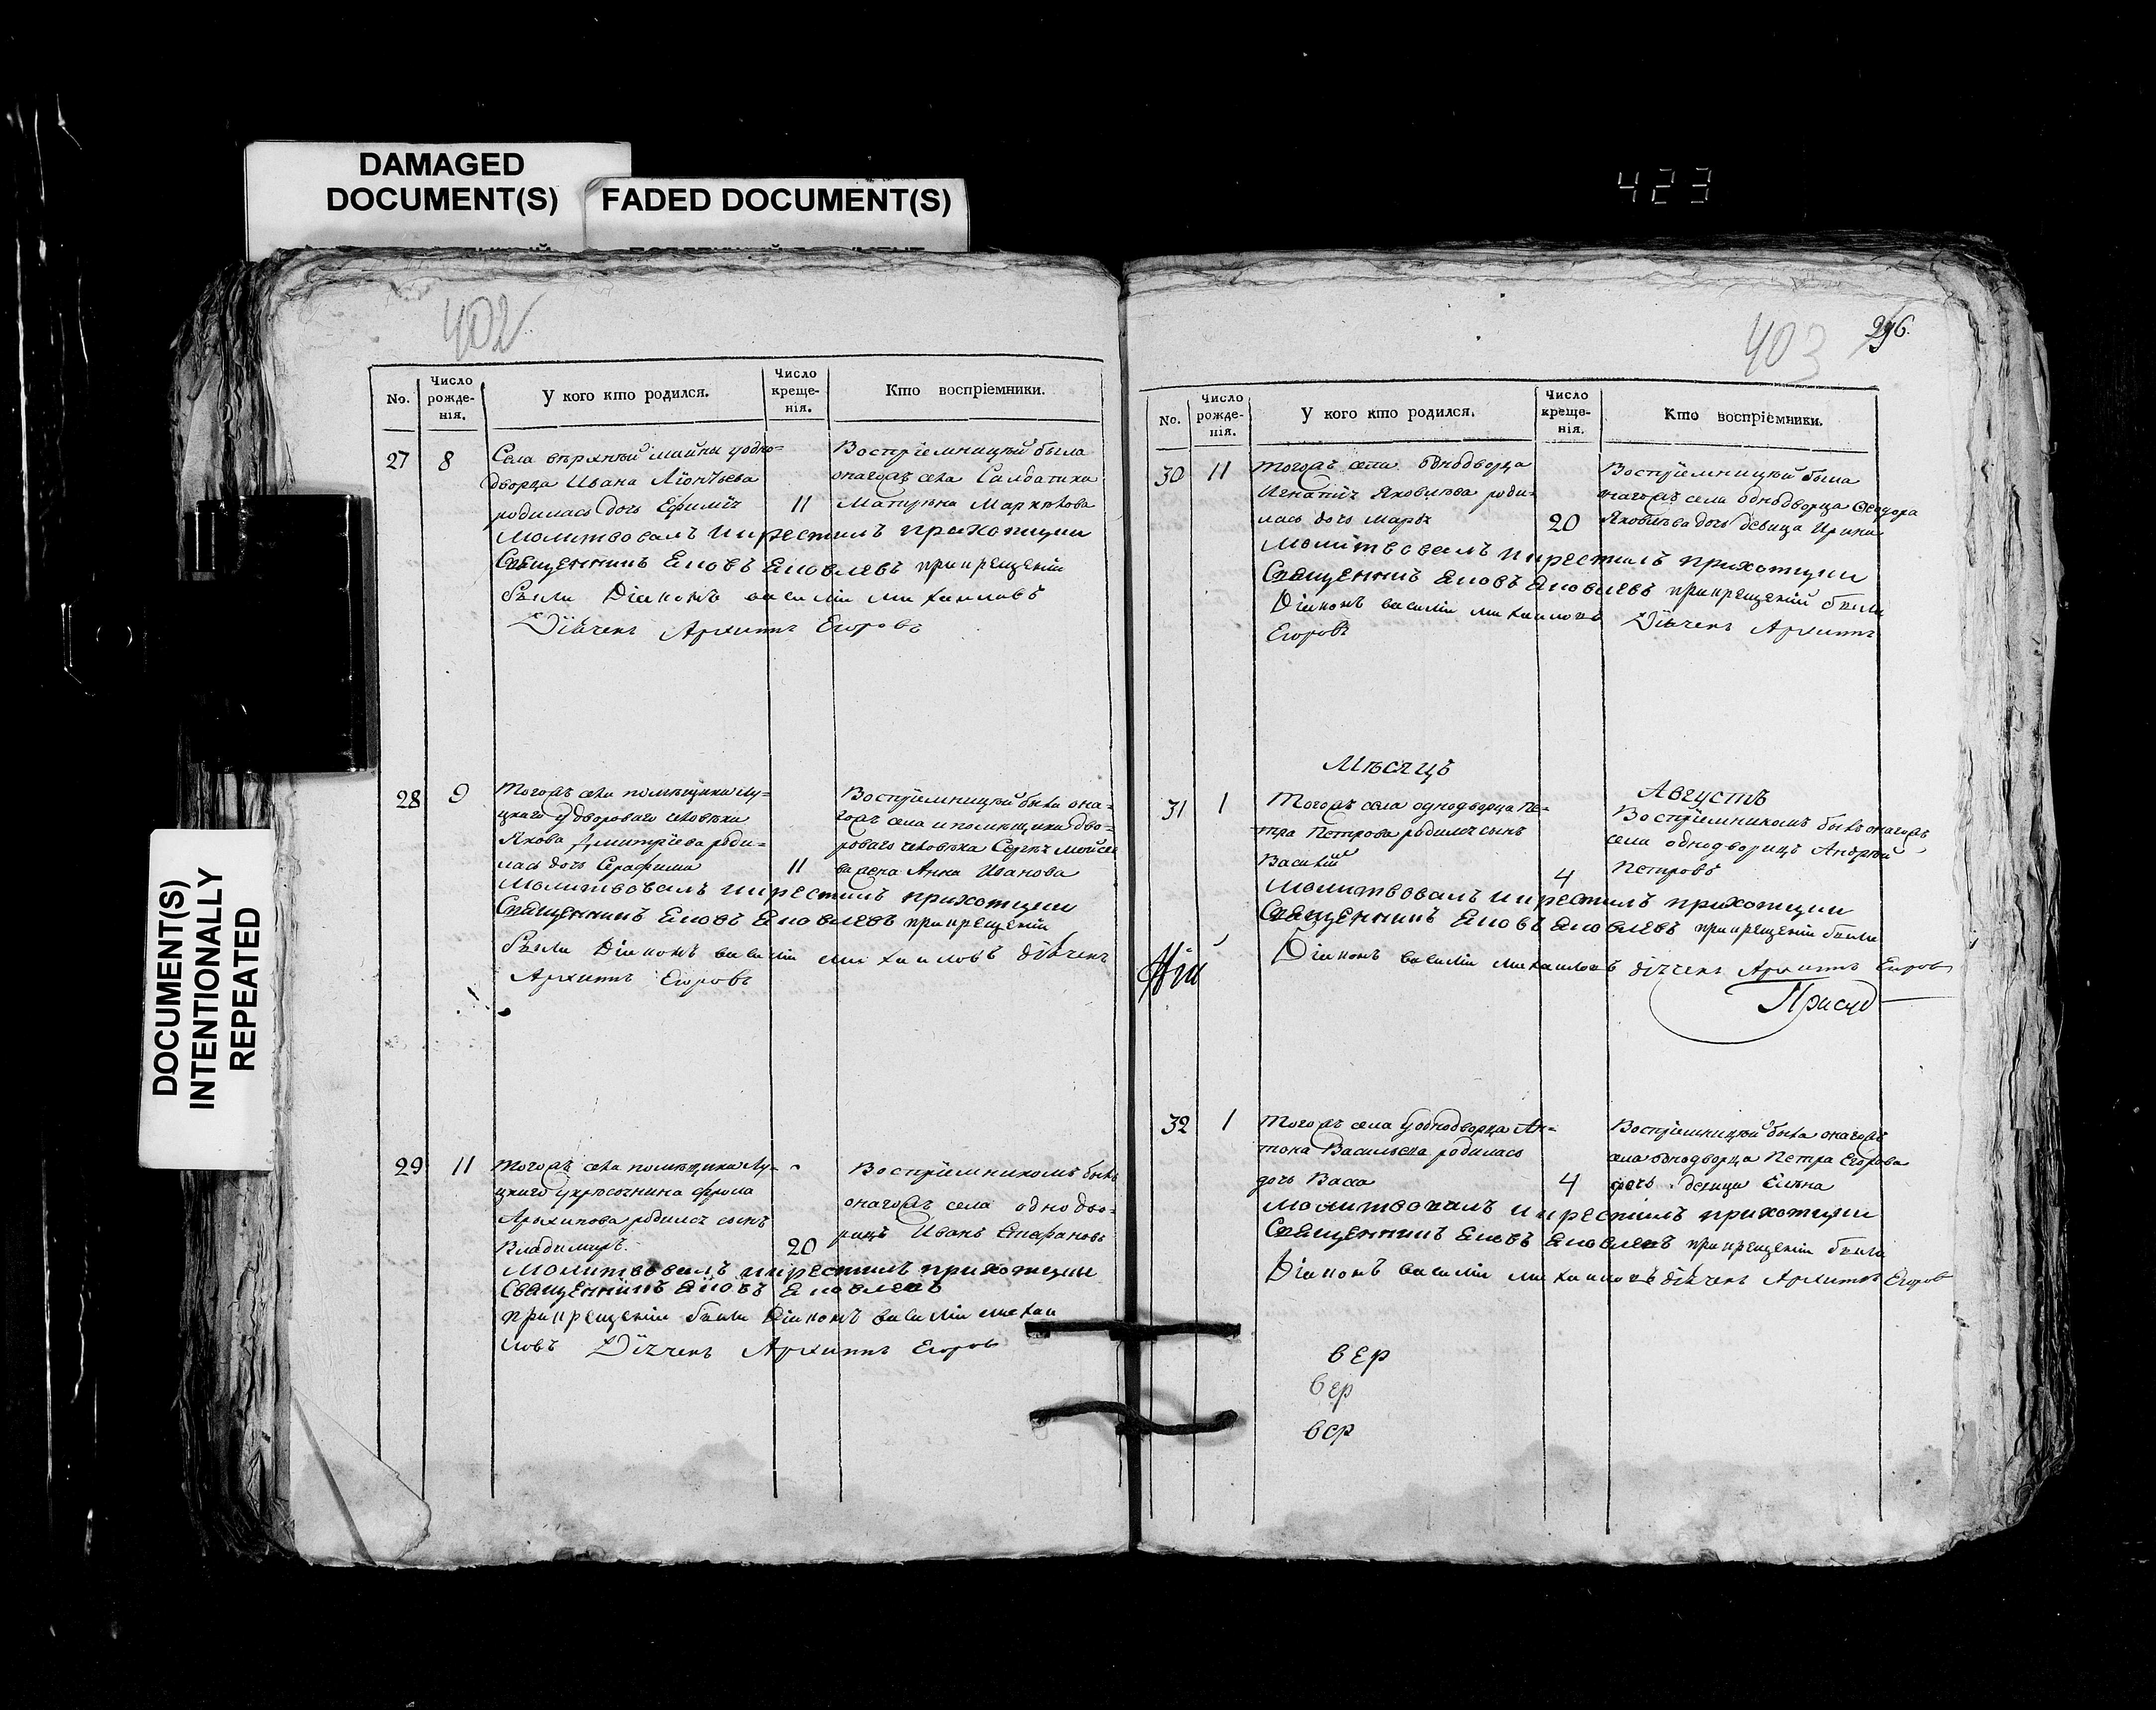 DAMAGED
DOCUMENT(S)
FADED DOCUMENT(S)
423
DOCUMENT(S)
INTENTIONALLY
REPEATED
402
No.
Число рожде-нія.
У кого кто родился.
Число креще-нія.
Кто воспріемники.
27 8
Села верхней майны уодно=
дворца Ивана Лїонтьева
родилась дочь Ефимiя 11
Воспрїемницей была
онагожъ села Салдатка
Матрена Маркелова
Молитвовалъ и крестилъ приходскии
Священникъ Ековъ Ековлевъ при крещенїи
были Дїаконъ василiи михаиловъ
Дїячекъ Архипъ Егоровъ
28 9
Тогожъ села помещика Лу=
цкаго у двороваго человека
Якова Димитрїева роди=
лась дочь Серафима 11
Воспрїемницей была она=
гожъ села и помещика дво=
роваго человека Сергея Моисее
ва жена Анна Иванова
Молитвовалъ и крестилъ приходскии
Священникъ Ековъ Ековлевъ при крещенїи
были Дїаконъ василiи михаиловъ дїячекъ
Архипъ Егоровъ
29 11
Тогожъ села помещика Лу=
цкаго у крестьянина фрола
Архипова родился сынъ
Владимиръ 20
Воспрїемникомъ былъ
онагожъ села однодво=
рецъ Иванъ Епифановъ
Молитвовалъ и крестилъ приходскии
Священникъ Ековъ Ековлевъ
при крещенїи были Дїаконъ василiи михаи
ловъ Дїячекъ Архипъ Егоровъ
403
296.
No.
Число рожде-нія.
У кого кто родился.
Число креще-нія.
Кто воспріемники.
30 11
Тогожъ села однодворца
Игнатiя Яковлева роди=
лась дочь Марья 20
Воспрїемницей была
онагожъ села однодворца Федора
Яковлева дочь девица Ирина
Молитвовалъ и крестилъ приходскии
Священникъ Ековъ Ековлевъ при крещенїи были
Дїаконъ василiи михаиловъ Дїячекъ Архипъ
Егоровъ
Месяцъ Августъ
31 1
Тогожъ села однодворца Пе=
тра Петрова родился сынъ
Василiй 4
Воспрїемникомъ былъ онагожъ
села однодворецъ Андрей
Петровъ
Молитвовалъ и крестилъ приходскии
Священникъ Ековъ Ековлевъ при крещенїи были
Дїаконъ василiи михаиловъ дїячекъ Архипъ Егоровъ
Присуд
32 1
Тогожъ села у однодворца Ан=
тона Васильева родилась
дочь Васса 4
Воспрїемницей была онагожъ
села однодворца Петра Егорова
дочь девица Елена
Молитвовалъ и крестилъ приходскии
Священникъ Ековъ Ековлевъ при крещенїи были
Дїаконъ василiи михаиловъ дїячекъ Архипъ Егоровъ
вер
вер
вер